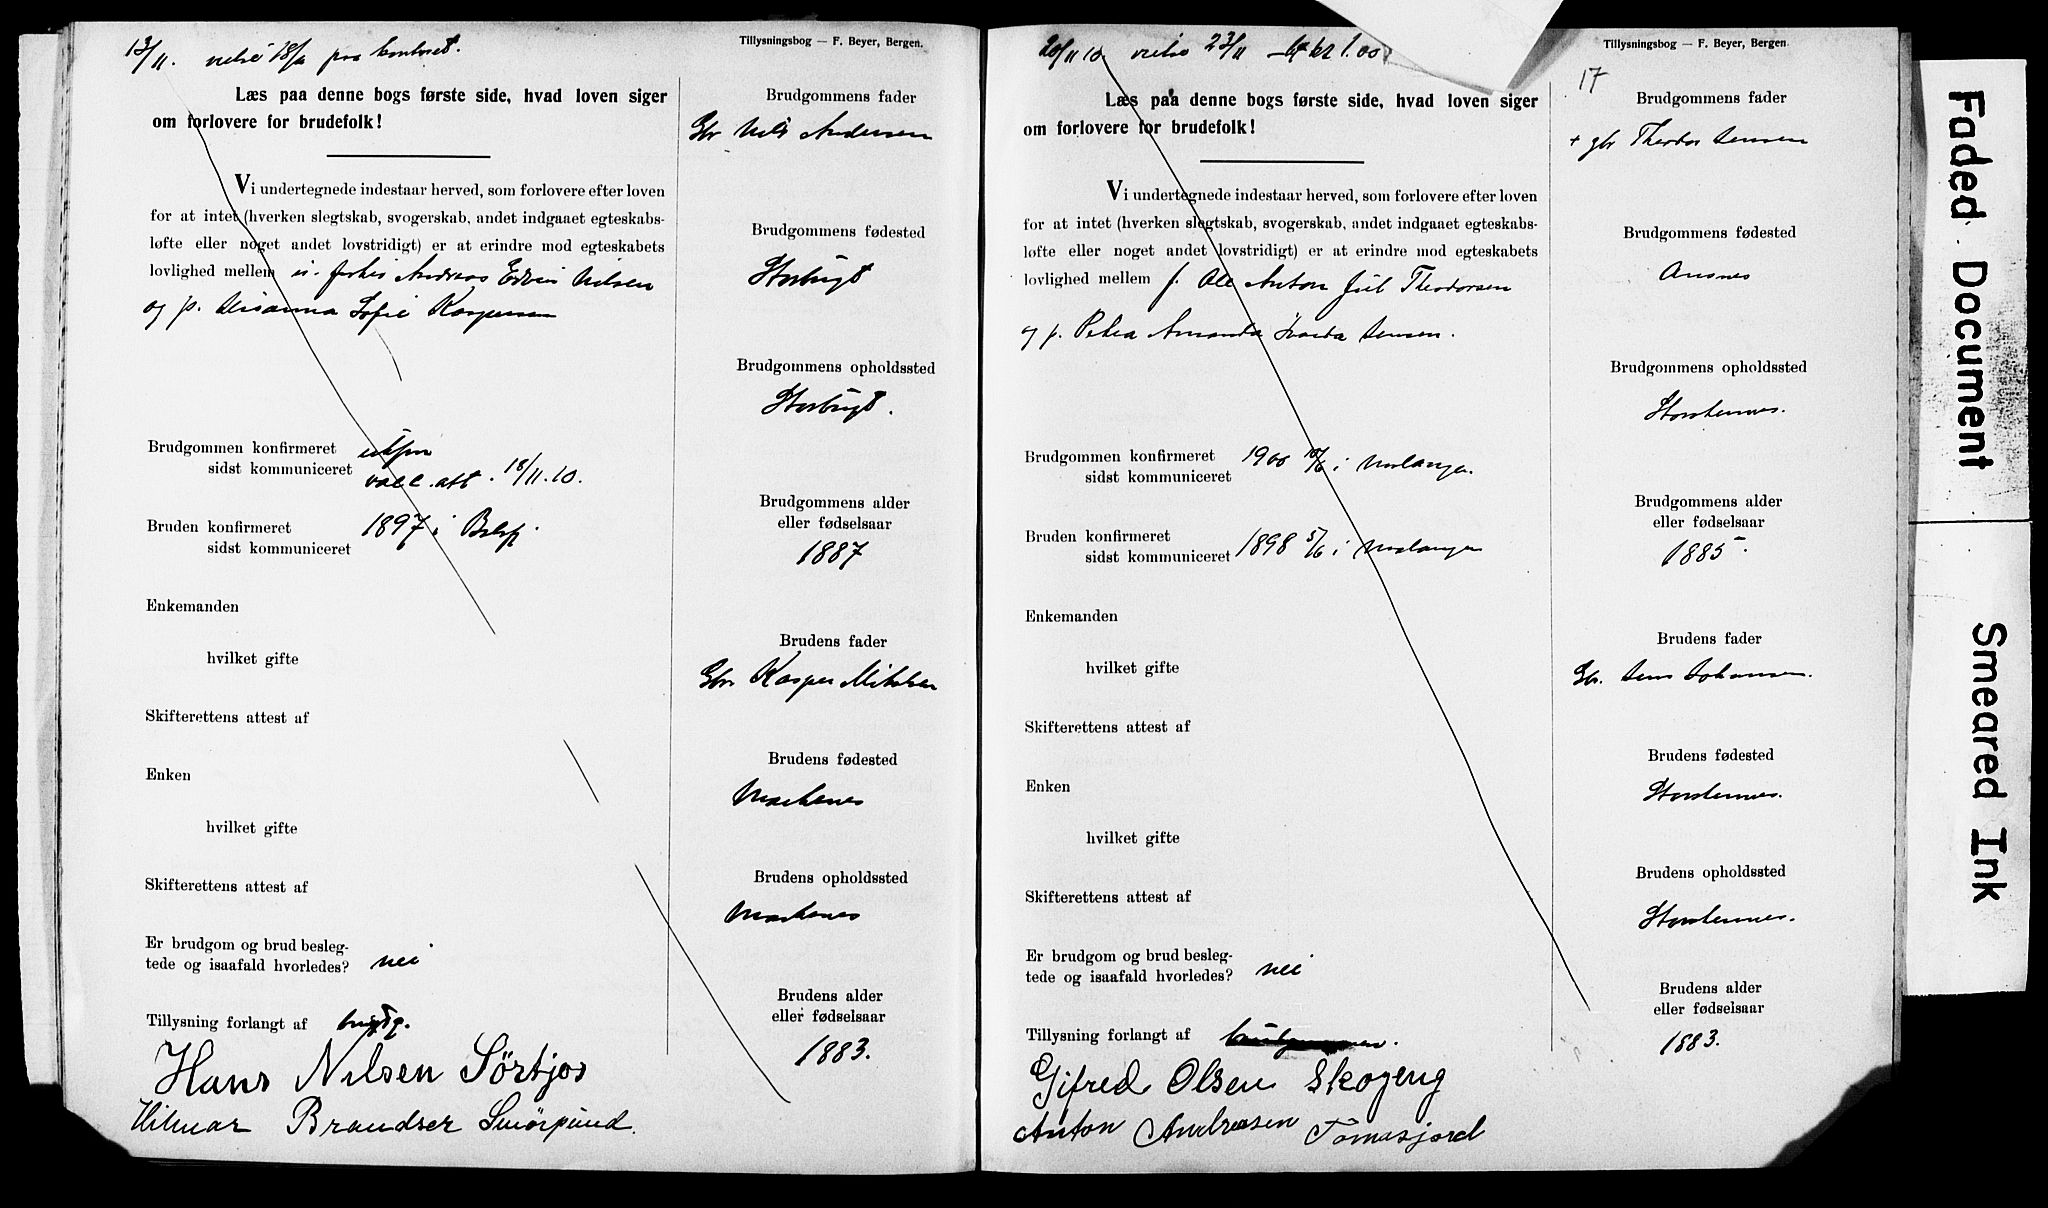 13/11. vielse 18/11 paa kontoret.
Tillysningsbog — F. Beyer, Bergen.
Læs paa denne bogs første side, hvad loven siger
om forlovere for brudefolk!
Vi undertegnede indestaar herved, som forlovere efter loven
for at intet (hverken slegtskab, svogerskab, andet indgaaet egteskabs-
løfte eller noget andet lovstridigt) er at erindre mod egteskabets
lovlighed mellem Andreas Edvin Nilsen
og p. Susanna Sofie Kaspersen
Brudgommen konfirmeret
sidst kommuniceret vacc. att. 18/11.10.
Bruden konfirmeret 1897 i Balsfj.
sidst kommuniceret
Enkemanden
hvilket gifte
Skifterettens attest af
Enken
hvilket gifte
Skifterettens attest af
Er brudgom og brud besleg-
tede og isaafald hvorledes? nei
Tillysning forlangt af brudg.
Hans Nilsen Sörtjos
Hilmar Brandser Smörpund.
Brudgommens fader
Gbr Nils Andersen
Brudgommens fødested
Storbugt
Brudgommens opholdssted
Storbugt.
Brudgommens alder
eller fødselsaar
1887
Brudens fader
Gbr. Kasper Mikkelsen
Brudens fødested
Markenes
Brudens opholdssted
Markenes
Brudens alder
eller fødselsaar
1883.
20/11 10. vielse 23/11 kr 1.00
Tillysningsbog — F. Beyer, Bergen.
17
Læs paa denne bogs første side, hvad loven siger
om forlovere for brudefolk!
Vi undertegnede indestaar herved, som forlovere efter loven
for at intet (hverken slegtskab, svogerskab, andet indgaaet egteskabs-
løfte eller noget andet lovstridigt) er at erindre mod egteskabets
lovlighed mellem f. Ole Anton Juel Theodorsen
og p. Petra Amanda Hvarda Jensen.
Brudgommen konfirmeret 1900 10/6 i Malangen
sidst kommuniceret
Bruden konfirmeret 1898 5/6 i Malangen
sidst kommuniceret
Enkemanden
hvilket gifte
Skifterettens attest af
Enken
hvilket gifte
Skifterettens attest af
Er brudgom og brud besleg-
tede og isaafald hvorledes? nei
Tillysning forlangt af brudgommen.
Gifred Olsen Skogeng
Anton Andreasen Tomasjord
Brudgommens fader
+ gbr Theodor Jensen
Brudgommens fødested
Ansnes
Brudgommens opholdssted
Storstennes.
Brudgommens alder
eller fødselsaar
1885.
Brudens fader
Gbr. Jens Johansen.
Brudens fødested
Storstennes.
Brudens opholdssted
Storstennes.
Brudens alder
eller fødselsaar
1883.
Faded Document
Smeared Ink